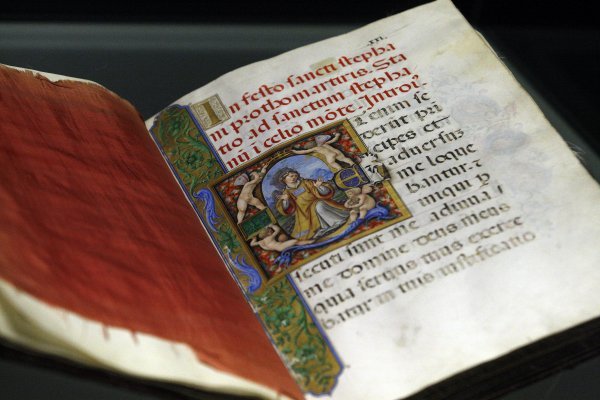 In festo sancti stepha
ni prothomartiris. Sta
tio ad sanctum stepha
nū i celio mōte. Introi
T enim se
derūt pri
cipes et
aduersus
me loque
bantur:
iniqui p
secuti sunt me adiuua
me domine deus meus
quia seruus tuus exerce
batur in tuis iustificatio